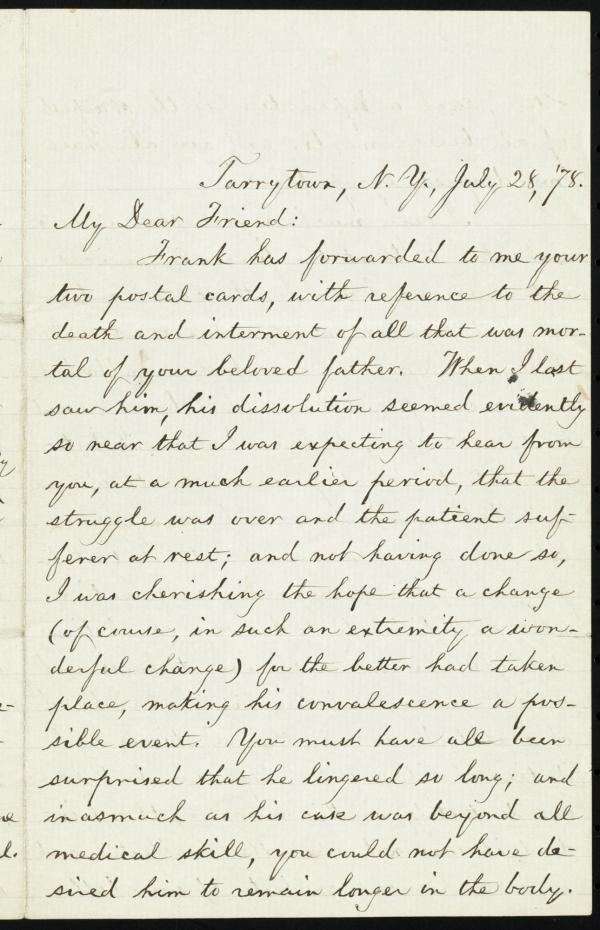 Tarrytown, N. Y., July 28, '78.
My Dear Friend:
Frank has forwarded to me your
two postal cards, with reference to the
death and interment of all that was mor-
tal of your beloved father. When I last
saw him, his dissolution seemed evidently
so near that I was expecting to hear from
you, at a much earlier period, that the
struggle was over and the patient suf-
ferer at rest; and not having done so,
I was cherishing the hope that a change
(of course, in such an extremity a won-
derful change) for the better had taken
place, making his convalescence a pos-
sible event. You must have all been
surprised that he lingered so long; and
inasmuch as his case was beyond all
medical skill, you could not have de-
sired him to remain longer in the body.